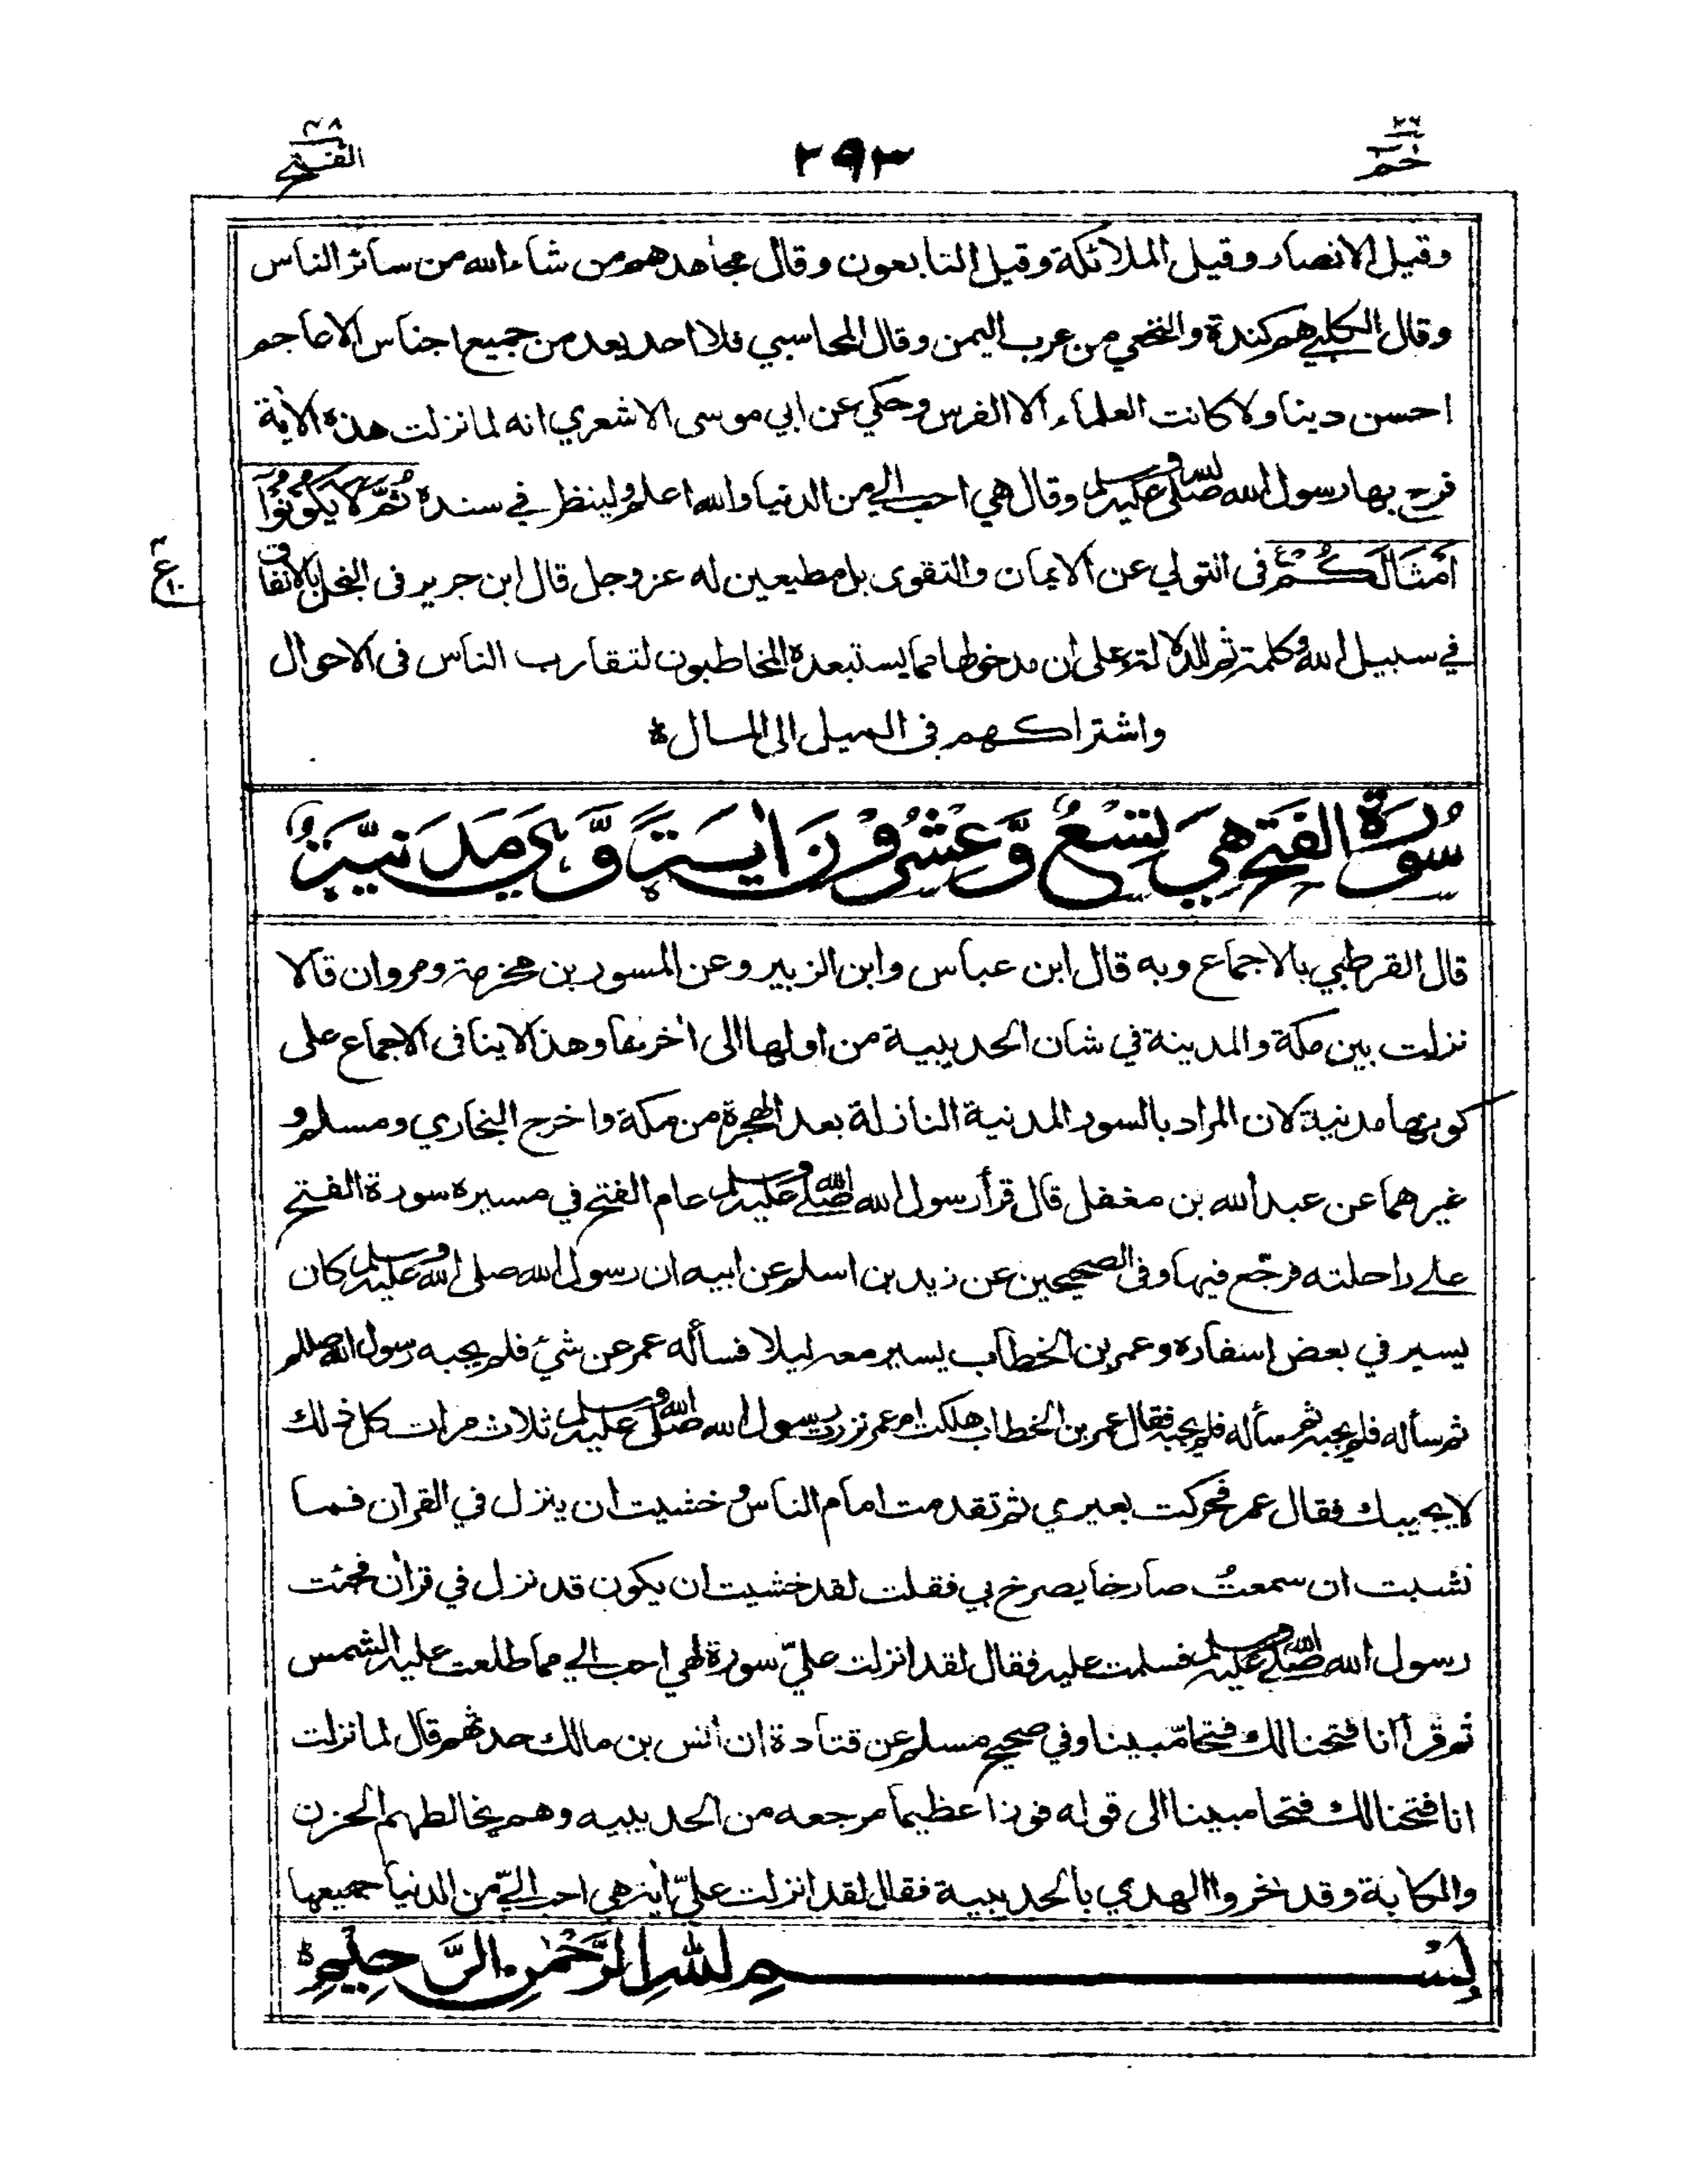 ٢٦
حم
٢٩٣
٤٨
الفتح
وقيل الانصار وقيل الملائكة وقيل التابعون وقال مجاهد هم من شاء الله من سائر الناس
وقال الكلبي هم كندة والنخعي من عرب اليمن وقال المحاسبي فلا احد بعد من جميع اجناس الاعاجم
احسن دينا ولا كانت العلماء الا الفرس وحكي عن ابي موسى الاشعري انه لما نزلت هذه الاية
فرح بها رسول الله صلى الله عليه وسلم وقال هي احب الي من الدنيا والله اعلم ولينظر في سنده ثُمَّ لَا يَكُوْنُوْٓا
اَمْثَالَكُمْ في التولي عن الايمان والتقوى بل مطيعين له عز وجل قال ابن جرير في البخل بالانفاق
في سبيل الله وكلمة ثم للدلالة على ان مدخولها مما يستبعده المخاطبون لتقارب الناس في الاحوال
واشتراكهم في الميل الى المال ه
ع
١٠
سُوْرَةُ الفَتْحِ هِيَ تِسْعٌ وَّعِشْرُوْنَ اٰيَةً وَّهِيَ مَدَنِيَّةٌ
قال القرطبي بالاجماع وبه قال ابن عباس وابن الزبير وعن المسور بن مخرمة ومروان قالا
نزلت بين مكة والمدينة في شان الحديبية من اولها الى اخرها وهذا لاينافى الاجماع على
كونها مدنية لان المراد بالسور المدنية النازلة بعد الهجرة من مكة واخرج البخاري ومسلم و
غيرهما عن عبد الله بن مغفل قال قرأ رسول الله صلى الله عليه وسلم عام الفتح في مسيره سورة الفتح
على راحلته فرجّع فيها وفى الصحيحين عن زيد بن اسلم عن ابيه ان رسول الله صلى الله عليه وسلم كان
يسير في بعض اسفاره وعمر بن الخطاب يسير معه ليلا فسأله عمر عن شئ فلم يجبه رسول الله صللم
ثم سأله فلم يجبه ثم سأله فلم يجبه فقال عمر بن الخطاب هلكت ام عمر نزرت رسول الله صلى الله عليه وسلم ثلاث مرات كل ذلك
لا يجيبك فقال عمر فحركت بعيري ثم تقدمت امام الناس وخشيت ان ينزل في القرآن فما
نشبت ان سمعت صارخا يصرخ بي فقلت لقد خشيت ان يكون قد نزل في قرآن فجئت
رسول الله صلى الله عليه وسلم فسلمت عليه فقال لقد انزلت عليّ سورة لهي احب الي مما طلعت عليه الشمس
ثم قرأ انا فتحنا لك فتحا مّبينا وفي صحيح مسلم عن قتادة ان انس بن مالك حدثهم قال لما نزلت
انا فتحنا لك فتحا مبينا الى قوله فوزا عظيما مرجعه من الحديبيه وهم يخالطهم الحزن
والكابة وقد نحروا الهدي بالحديبية فقال لقد انزلت عليّ اية هي احب اليّ من الدنيا جميعها
بِسْمِ اللهِ الرَّحْمٰنِ الرَّحِيْمِ ه